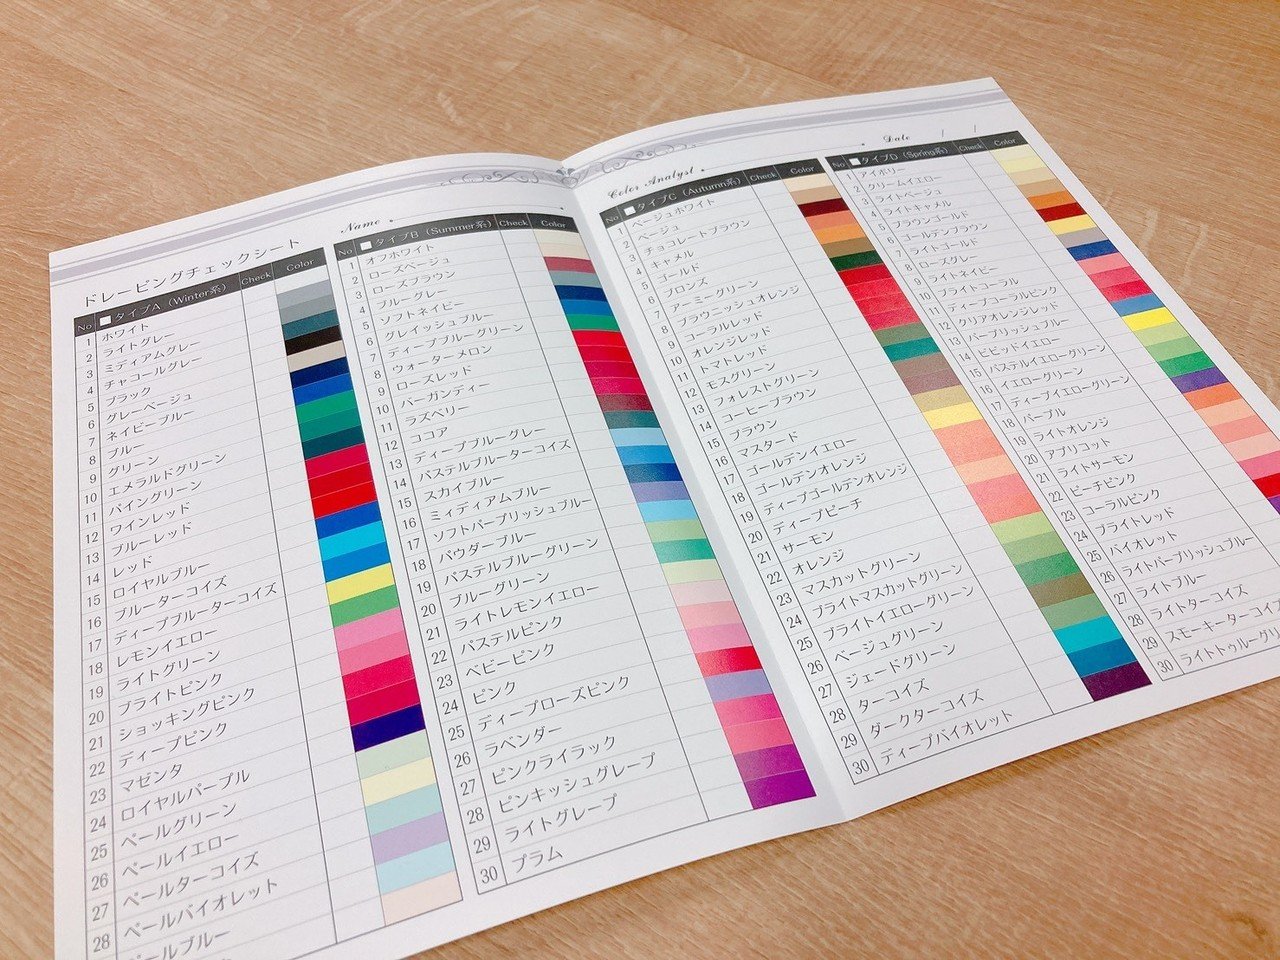 ドレーピングチェックシート
Name
Color Analyst
Date / /
No タイプA（Winter系） Check Color
1 ホワイト
2 ライトグレー
3 ミディアムグレー
4 チャコールグレー
5 ブラック
6 グレーベージュ
7 ネイビーブルー
8 ブルー
9 グリーン
10 エメラルドグリーン
11 パイングリーン
12 ワインレッド
13 ブルーレッド
14 レッド
15 ロイヤルブルー
16 ブルーターコイズ
17 ディープブルーターコイズ
18 レモンイエロー
19 ライトグリーン
20 ブライトピンク
21 ショッキングピンク
22 ディープピンク
23 マゼンタ
24 ロイヤルパープル
25 ペールグリーン
26 ペールイエロー
27 ペールターコイズ
28 ペールバイオレット
ペールブルー
No タイプB（Summer系） Check Color
1 オフホワイト
2 ローズベージュ
3 ローズブラウン
4 ブルーグレー
5 ソフトネイビー
6 グレイッシュブルー
7 ディープブルーグリーン
8 ウォーターメロン
9 ローズレッド
10 バーガンディー
11 ラズベリー
12 ココア
13 ディープブルーグレー
14 パステルブルーターコイズ
15 スカイブルー
16 ミィディアムブルー
17 ソフトパープリッシュブルー
18 パウダーブルー
19 パステルブルーグリーン
20 ブルーグリーン
21 ライトレモンイエロー
22 パステルピンク
23 ベビーピンク
24 ピンク
25 ディープローズピンク
26 ラベンダー
27 ピンクライラック
28 ピンキッシュグレープ
29 ライトグレープ
30 プラム
No タイプC（Autumn系） Check Color
1 ベージュホワイト
2 ベージュ
3 チョコレートブラウン
4 キャメル
5 ゴールド
6 ブロンズ
7 アーミーグリーン
8 ブラウニッシュオレンジ
9 コーラルレッド
10 オレンジレッド
11 トマトレッド
12 モスグリーン
13 フォレストグリーン
14 コーヒーブラウン
15 ブラウン
16 マスタード
17 ゴールデンイエロー
18 ゴールデンオレンジ
19 ディープゴールデンオレンジ
20 ディープピーチ
21 サーモン
22 オレンジ
23 マスカットグリーン
24 ブライトマスカットグリーン
25 ブライトイエローグリーン
26 ベージュグリーン
27 ジェードグリーン
28 ターコイズ
29 ダークターコイズ
30 ディープバイオレット
No タイプD（Spring系） Check Color
1 アイボリー
2 クリームイエロー
3 ライトベージュ
4 ライトキャメル
5 ブラウンゴールド
6 ゴールデンブラウン
7 ライトゴールド
8 ローズグレー
9 ライトネイビー
10 ライトコーラル
11 ディープコーラルピンク
12 クリアオレンジレッド
13 パープリッシュブルー
14 ビビッドイエロー
15 パステルイエローグリーン
16 イエローグリーン
17 ディープイエローグリーン
18 パープル
19 ライトオレンジ
20 アプリコット
21 ライトサーモン
22 ピーチピンク
23 コーラルピンク
24 ブライトレッド
25 バイオレット
26 ライトパープリッシュブルー
27 ライトブルー
28 ライトターコイズ
29 スモーキーターコイズ
30 ライトトゥルーグリ